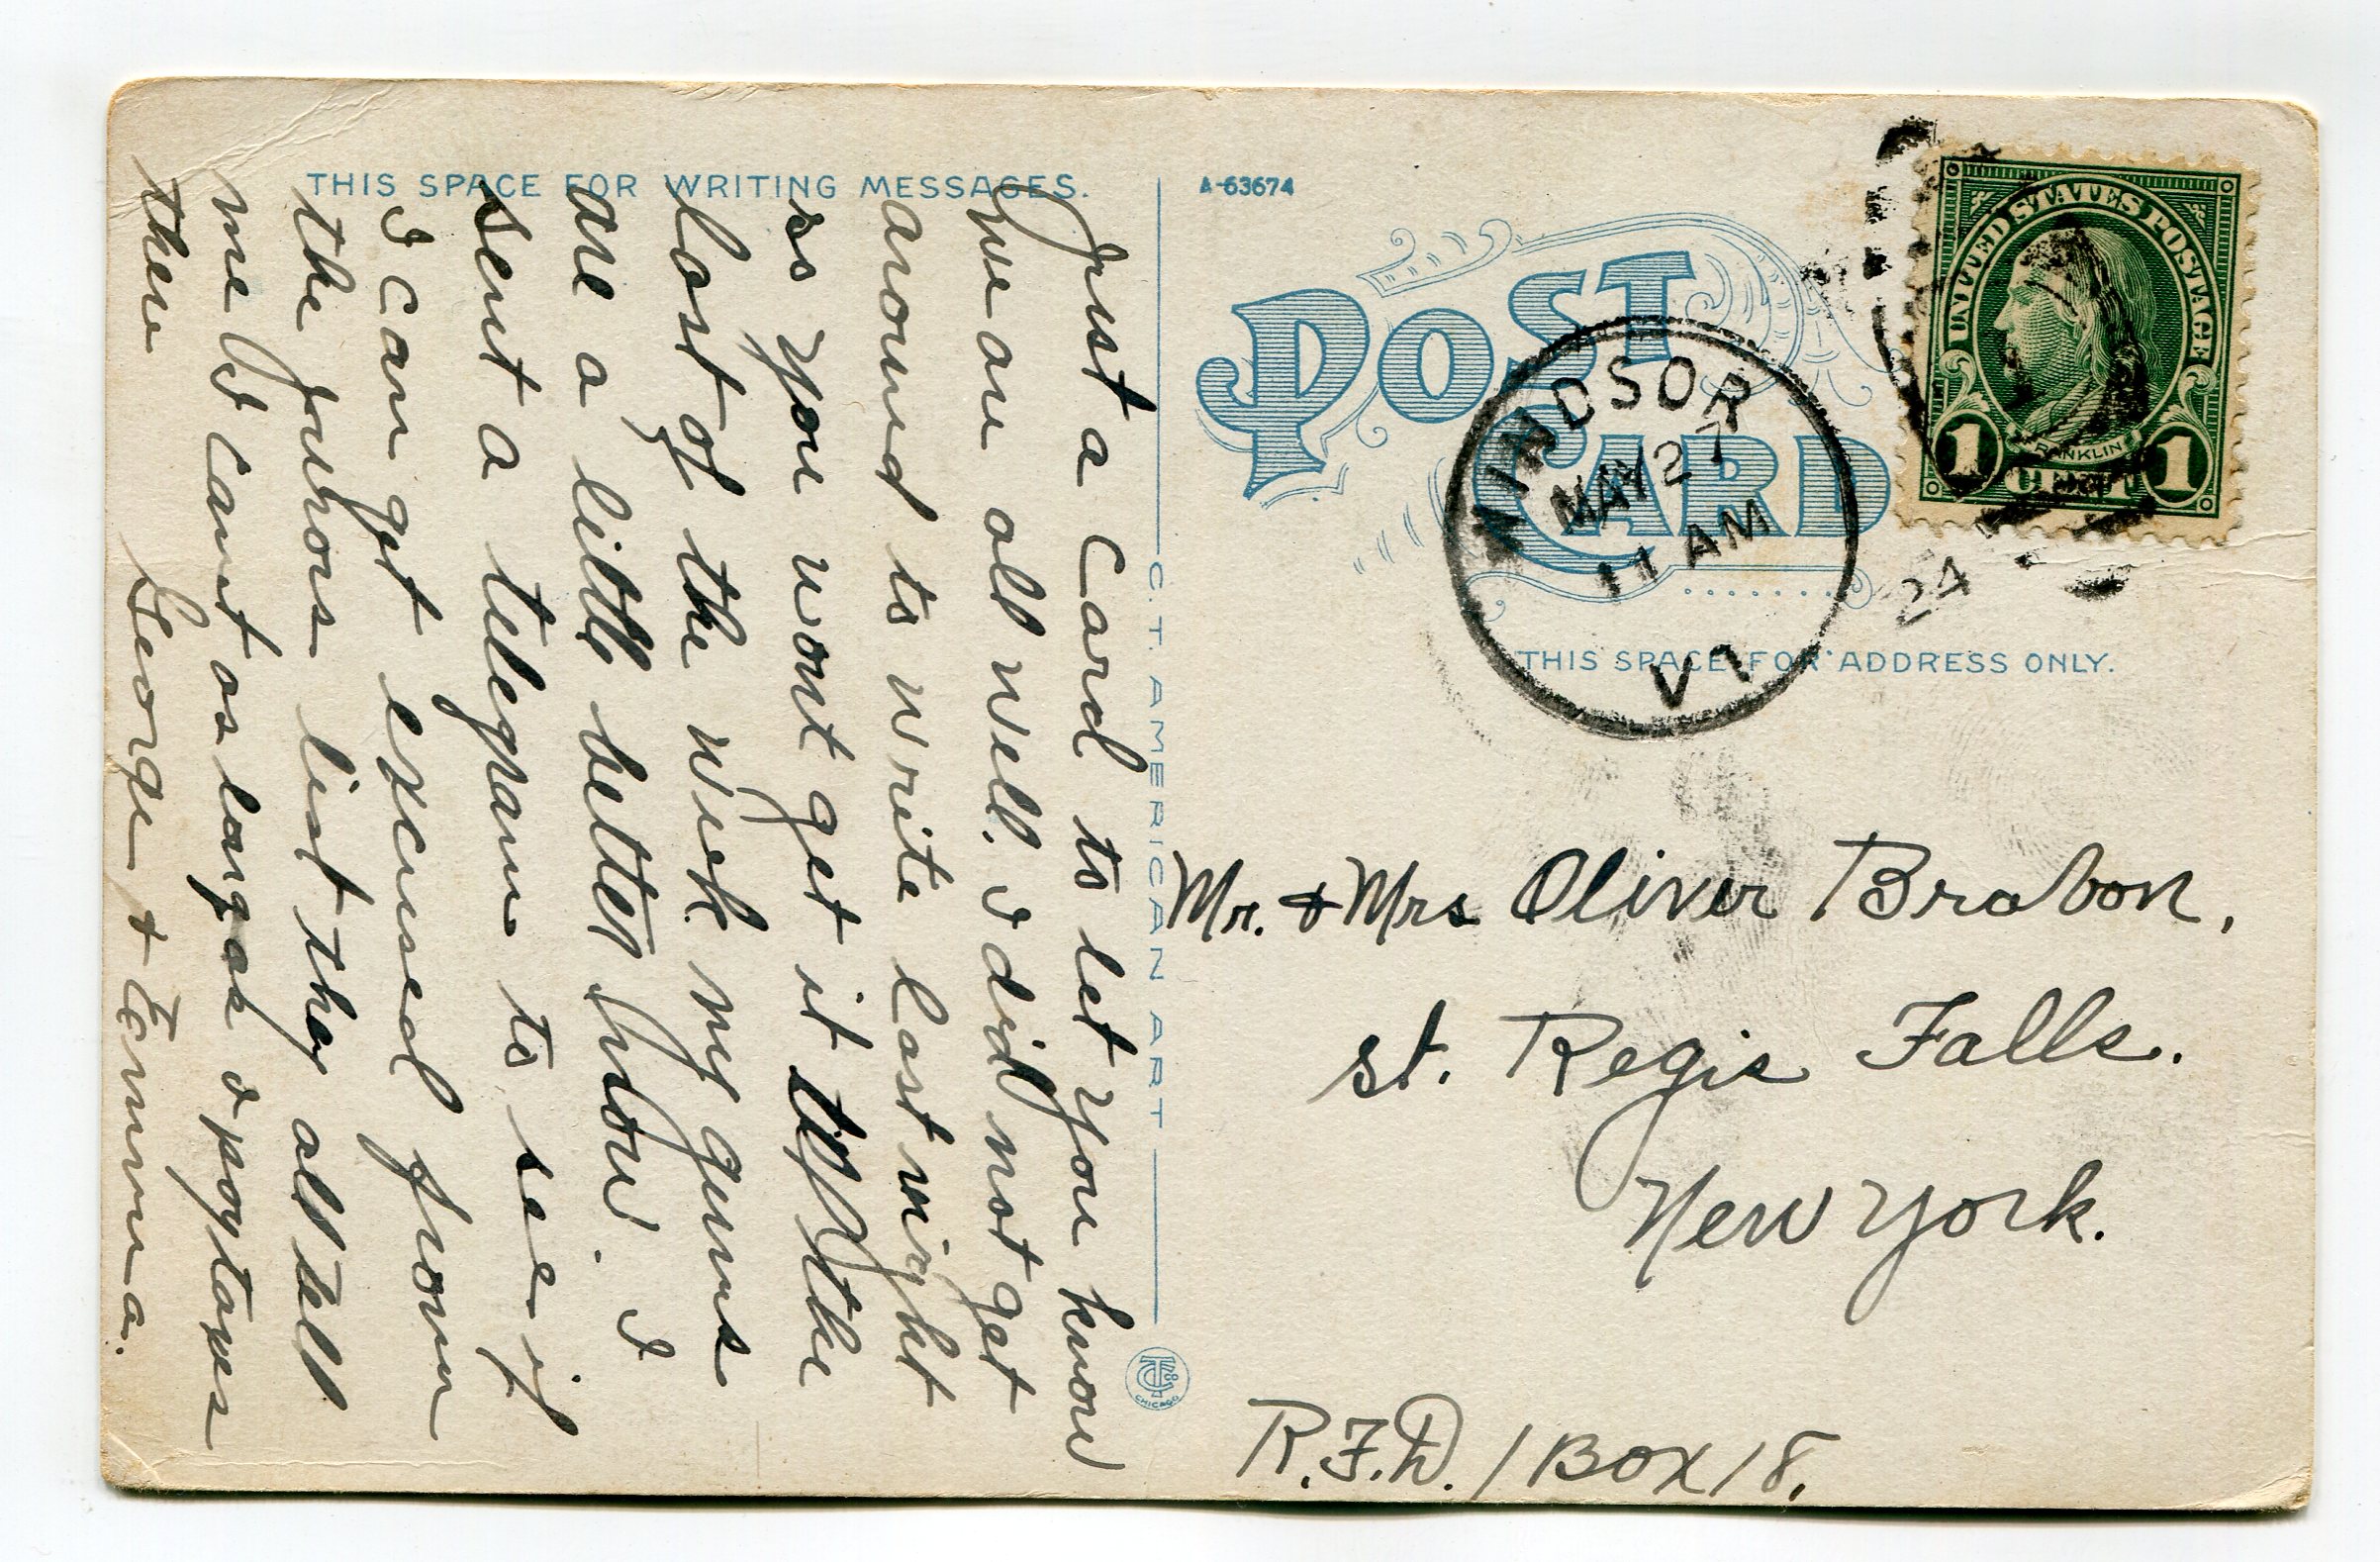 THIS SPACE FOR WRITING MESSAGES.
Just a card to let you know
we are all well. I did not get
around to write last night
so you wont get it till the
last of the week my gums
are a little better now. I
sent a telegram to see if
I can get excused from
the jurors list they all tell
me I cant as long as I pay taxes
there
George & Emma.
C. T. AMERICAN ART
CHICAGO
A-63674
POST
CARD
THIS SPACE FOR ADDRESS ONLY.
UNITED STATES POSTAGE
FRANKLIN
1 CENT 1
WINDSOR
MAY 27
11 AM
24
VT
Mr. & Mrs Oliver Brabon,
St. Regis Falls.
New York.
R.F.D. 1 Box 18.